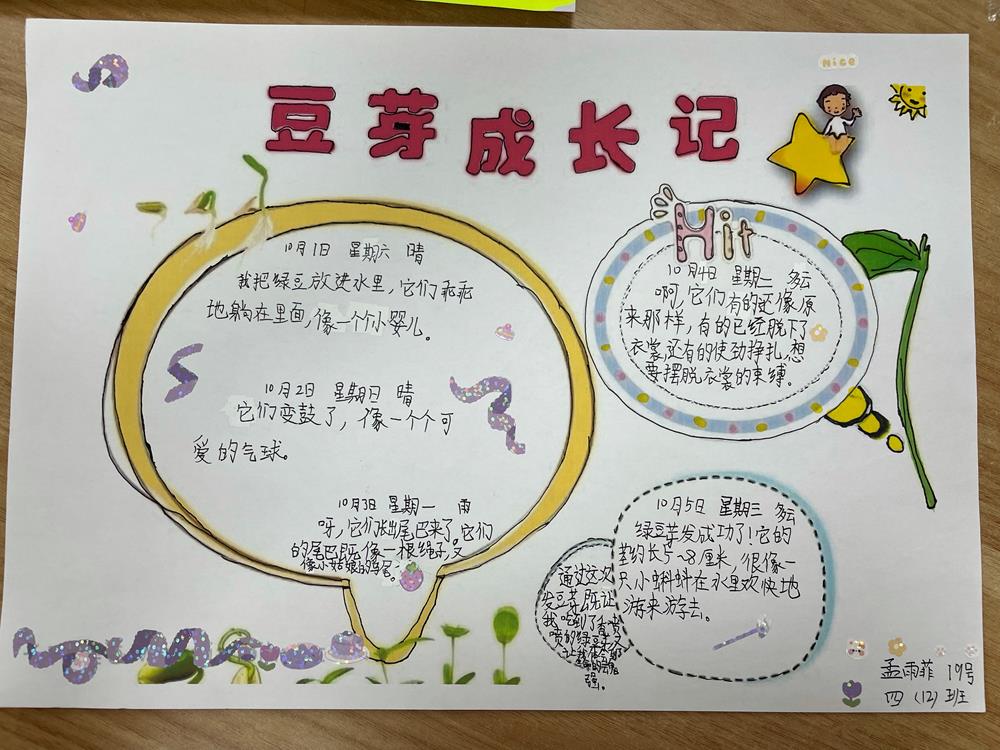 Nice
豆芽成长记
10月1日 星期六 晴
我把绿豆放进水里,它们乖乖
地躺在里面,像一个个小婴儿。
10月2日 星期日 晴
它们变鼓了,像一个个可
爱的气球。
10月3日 星期一 雨
呀,它们长出尾巴来了。它们
的尾巴既像一根绳子,又
像小姑娘的马尾。
Hit
10月4日 星期二 多云
啊,它们有的还像原
来那样,有的已经脱下了
衣裳,还有的使劲挣扎,想
要摆脱衣裳的束缚。
10月5日 星期三 多云
绿豆芽发成功了!它的
茎约长5~8厘米,很像一
只小蝌蚪在水里欢快地
游来游去。
通过这次
发豆芽,既让
我吃到了香喷
喷的绿豆芽,
强。
孟雨菲 19号
四(12)班